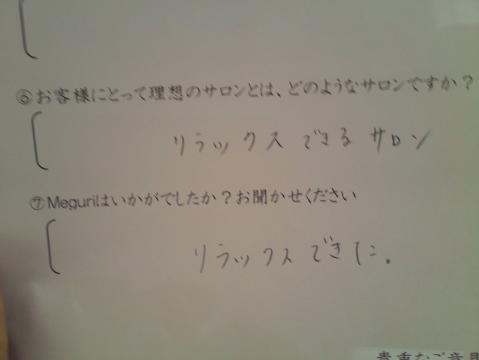 ⑥お客様にとって理想のサロンとは、どのようなサロンですか？
リラックスできるサロン
⑦Meguriはいかがでしたか？お聞かせください
リラックスできた。
貴重なご意見